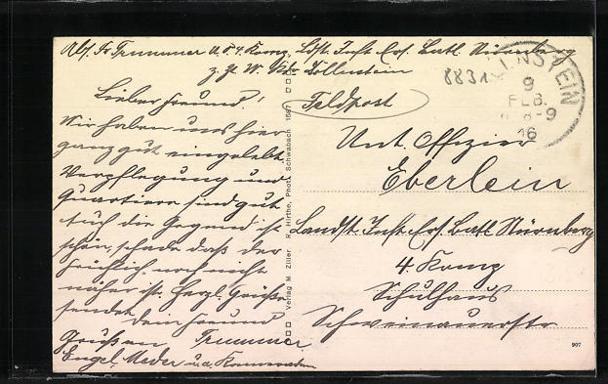 Abs. Trummer u. d. 4. Komp. Ldst. Inft. Ers. Batl. Nürnberg
z. Zt. W. Kdo Dollnstein
8831
DOLLNSTEIN
9
FEB.
8-9
16
Feldpost
Lieber Freund!
Wir haben uns hier
ganz gut eingelebt.
Verpflegung und
Quartiere sind gut
auch die Gegend ist
schön, schade daß der
noch nicht
näher ist. Herzl. Grüße
sendet dein Freund
Trummer
Grüßen
Engel, Meder u. a. Kameraden
Verlag M. Ziller R. Hirthe, Phot. Schwabach 1587
Unt. Offizier
Eberlein
Landst. Inft. Ers. Batl Nürnberg
4. Komp
Schulhaus
Schweinauerstr
907